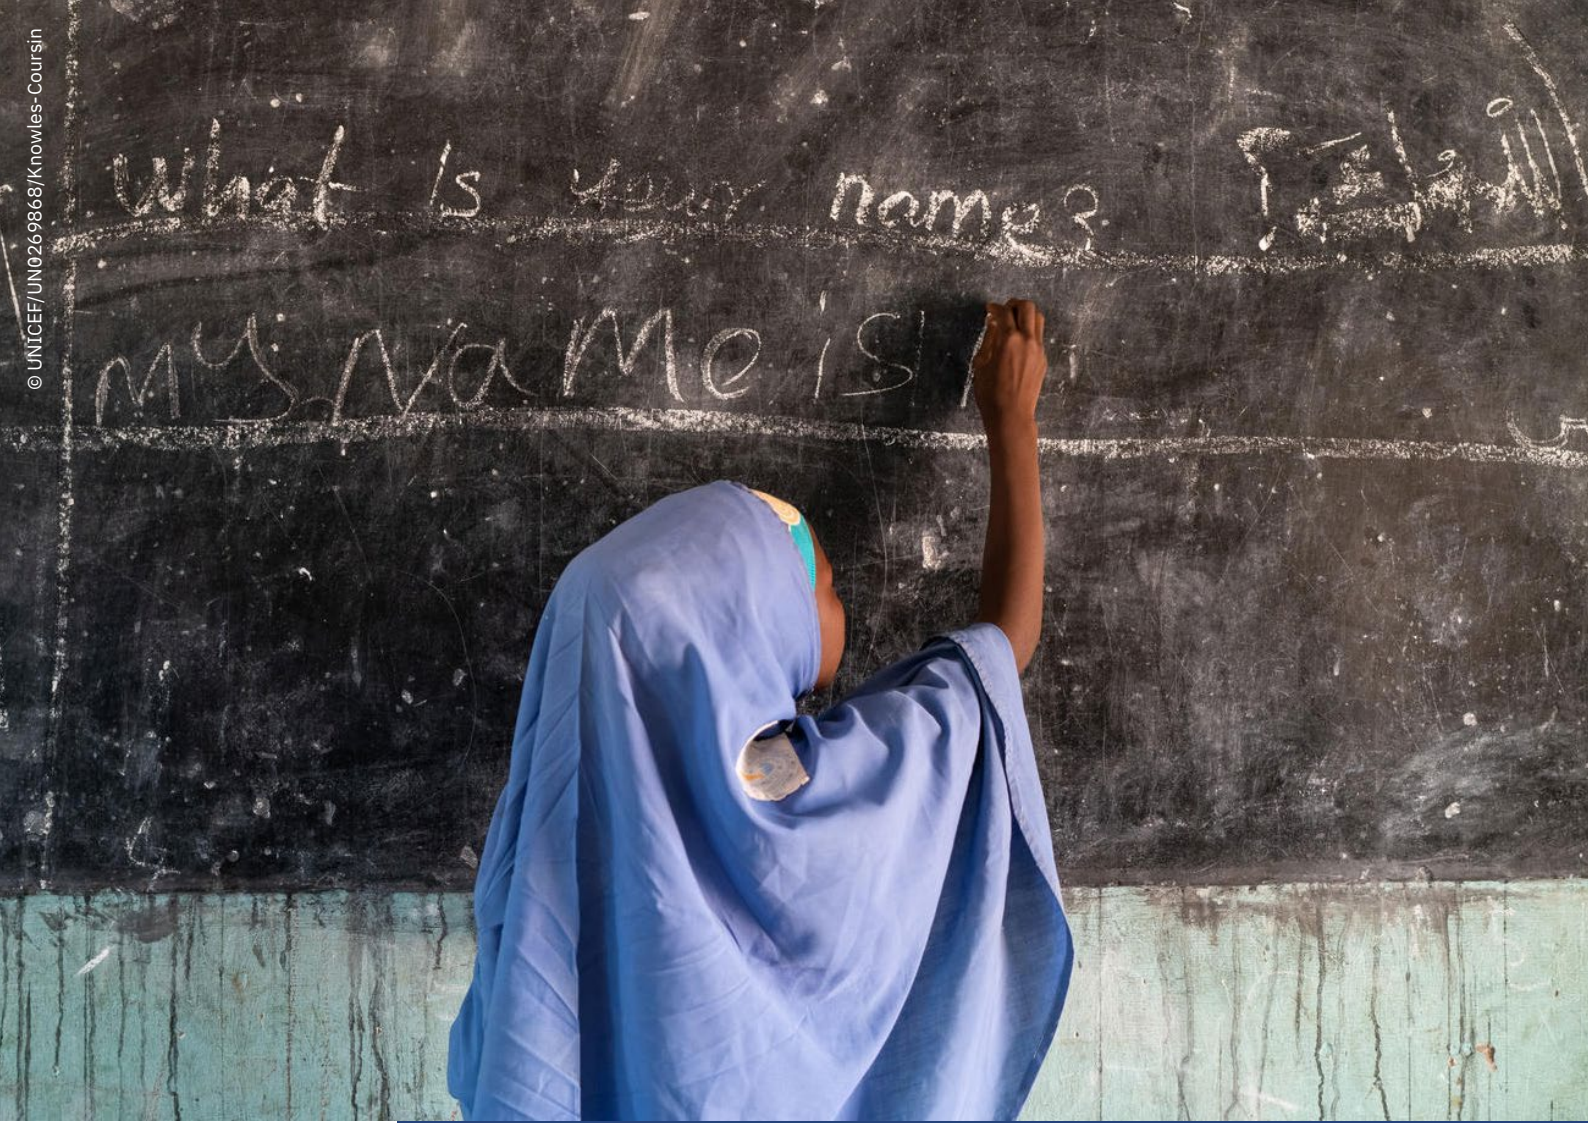 © UNICEF/UN0269868/Knowles-Coursin
What is your name?
My Name is